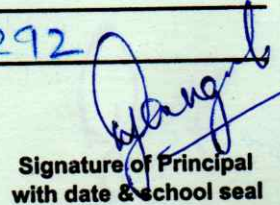 292
Signature of Principal
with date & school seal